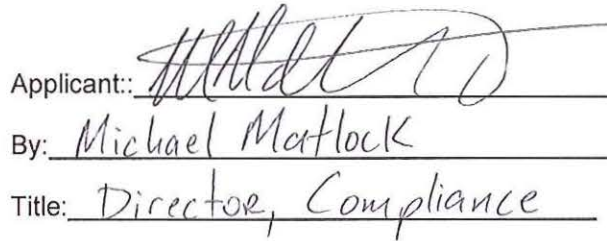 Applicant::
By: Michael Matlock
Title: Director, Compliance